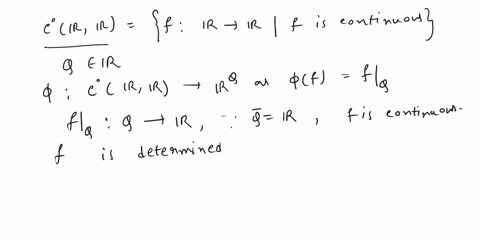 C°(ℝ, ℝ) = {f : ℝ → ℝ | f is continuous}
Q ∈ ℝ
ϕ : C°(ℝ, ℝ) → ℝ^Q as ϕ(f) = f|_Q
f|_Q : Q → ℝ, ∵ Q̄ = ℝ, f is continuous.
f is determined